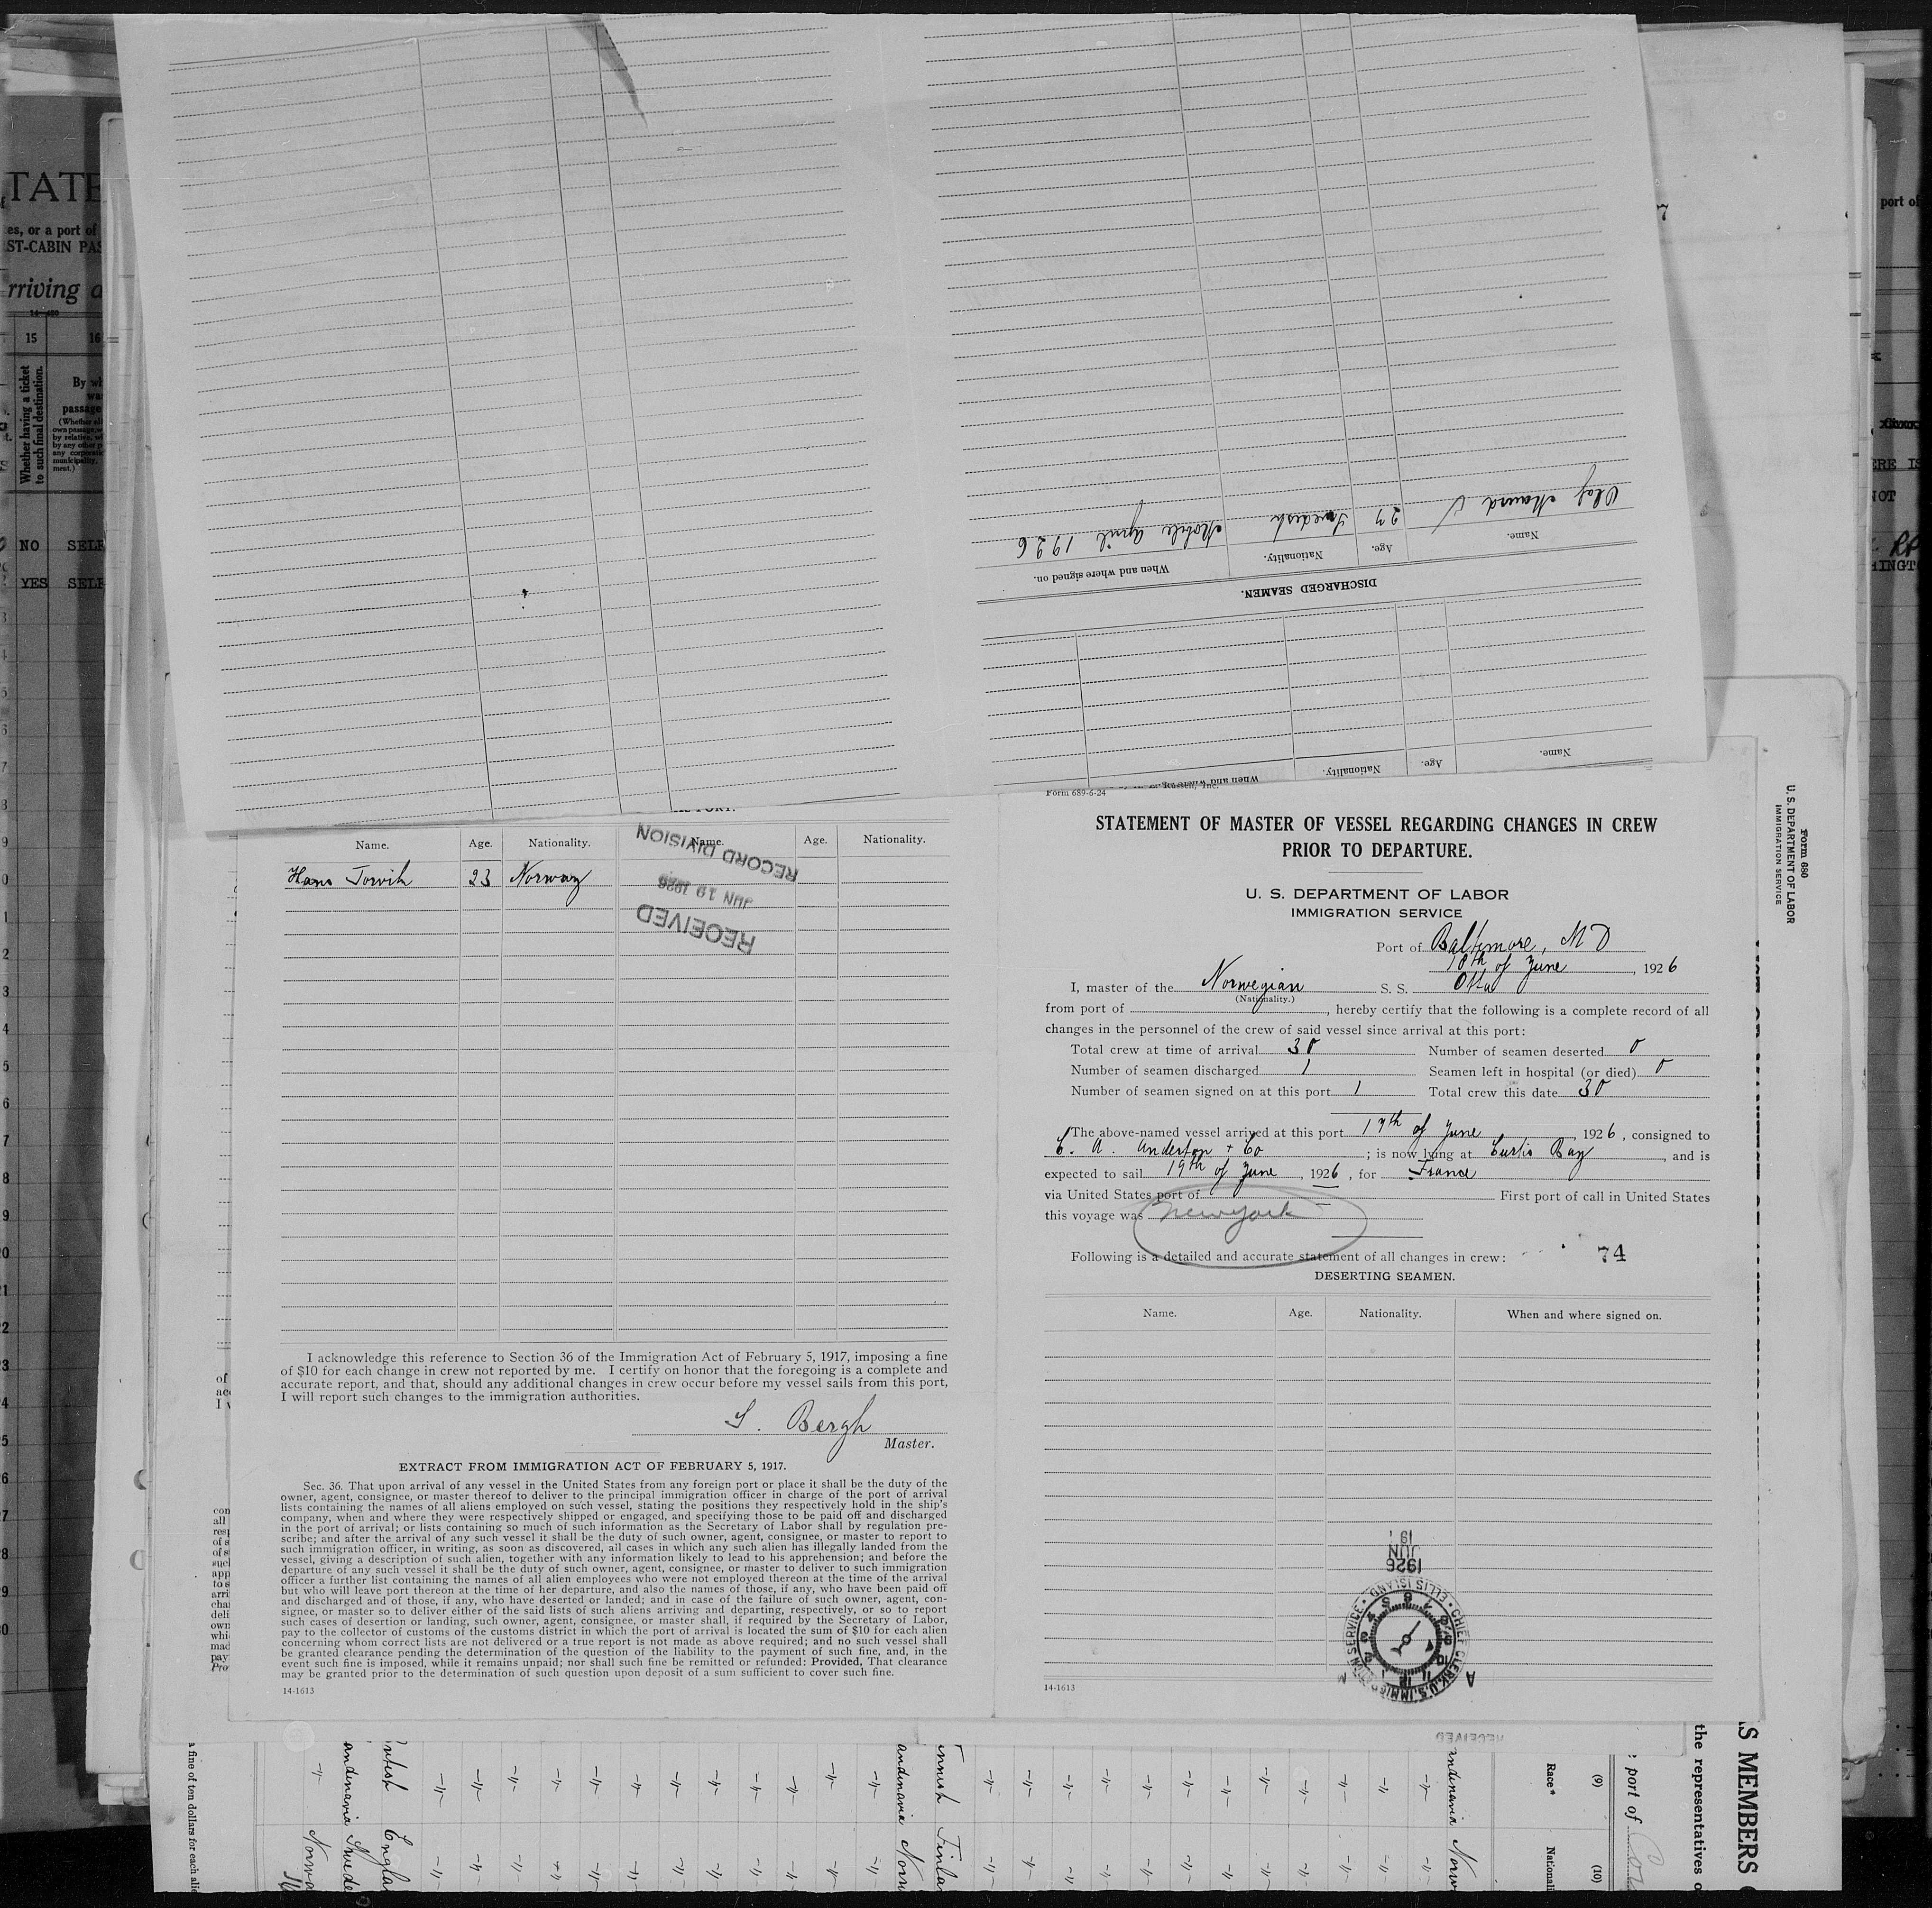 TATE
es, or a port of
ST-CABIN PAS
rriving a
15
16
Whether having a ticket
to such final destination.
By wh
was
passage
(Whether al
own passage, w
by relative, wh
by any other p
any corporatio
municipality,
ment.)
NO SELF
YES SELF
port of
ERE IS
NOT
Name. Age. Nationality. When and where signed on.
DISCHARGED SEAMEN.
Name. Age. Nationality. When and where signed on.
Olaf 27 Swedish Mobile April 1926
Name. Age. Nationality. Name. Age. Nationality.
Hans Torvik 23 Norway
RECEIVED
JUN 19 1926
RECORD DIVISION
I acknowledge this reference to Section 36 of the Immigration Act of February 5, 1917, imposing a fine
of $10 for each change in crew not reported by me. I certify on honor that the foregoing is a complete and
accurate report, and that, should any additional changes in crew occur before my vessel sails from this port,
I will report such changes to the immigration authorities.
S. Bergh
Master.
EXTRACT FROM IMMIGRATION ACT OF FEBRUARY 5, 1917.
Sec. 36. That upon arrival of any vessel in the United States from any foreign port or place it shall be the duty of the
owner, agent, consignee, or master thereof to deliver to the principal immigration officer in charge of the port of arrival
lists containing the names of all aliens employed on such vessel, stating the positions they respectively hold in the ship's
company, when and where they were respectively shipped or engaged, and specifying those to be paid off and discharged
in the port of arrival; or lists containing so much of such information as the Secretary of Labor shall by regulation pre-
scribe; and after the arrival of any such vessel it shall be the duty of such owner, agent, consignee, or master to report to
such immigration officer, in writing, as soon as discovered, all cases in which any such alien has illegally landed from the
vessel, giving a description of such alien, together with any information likely to lead to his apprehension; and before the
departure of any such vessel it shall be the duty of such owner, agent, consignee, or master to deliver to such immigration
officer a further list containing the names of all alien employees who were not employed thereon at the time of the arrival
but who will leave port thereon at the time of her departure, and also the names of those, if any, who have been paid off
and discharged and of those, if any, who have deserted or landed; and in case of the failure of such owner, agent, con-
signee, or master so to deliver either of the said lists of such aliens arriving and departing, respectively, or so to report
such cases of desertion or landing, such owner, agent, consignee, or master shall, if required by the Secretary of Labor,
pay to the collector of customs of the customs district in which the port of arrival is located the sum of $10 for each alien
concerning whom correct lists are not delivered or a true report is not made as above required; and no such vessel shall
be granted clearance pending the determination of the question of the liability to the payment of such fine, and, in the
event such fine is imposed, while it remains unpaid; nor shall such fine be remitted or refunded: Provided, That clearance
may be granted prior to the determination of such question upon deposit of a sum sufficient to cover such fine.
14-1613
Form 689-6-24
STATEMENT OF MASTER OF VESSEL REGARDING CHANGES IN CREW
PRIOR TO DEPARTURE.
U. S. DEPARTMENT OF LABOR
IMMIGRATION SERVICE
Port of Baltimore, MD
18th of June, 1926
I, master of the Norwegian S. S. Otta
(Nationality.)
from port of , hereby certify that the following is a complete record of all
changes in the personnel of the crew of said vessel since arrival at this port:
Total crew at time of arrival 30 Number of seamen deserted 0
Number of seamen discharged 1 Seamen left in hospital (or died) 0
Number of seamen signed on at this port 1 Total crew this date 30
The above-named vessel arrived at this port 17th of June, 1926, consigned to
C. A. Anderson + Co; is now lying at Curtis Bay, and is
expected to sail 19th of June, 1926, for France
via United States port of First port of call in United States
this voyage was New York
Following is a detailed and accurate statement of all changes in crew: 74
DESERTING SEAMEN.
Name. Age. Nationality. When and where signed on.
1926
JUN
19
CHIEF CLERK, U.S. IMMIGRATION SERVICE · ELLIS ISLAND ·
14-1613
Form 680
U. S. DEPARTMENT OF LABOR
IMMIGRATION SERVICE
S MEMBERS
the representatives o
port of
(9) (10)
Race*
Nationali
a fine of ten dollars for each alie
RECEIVED